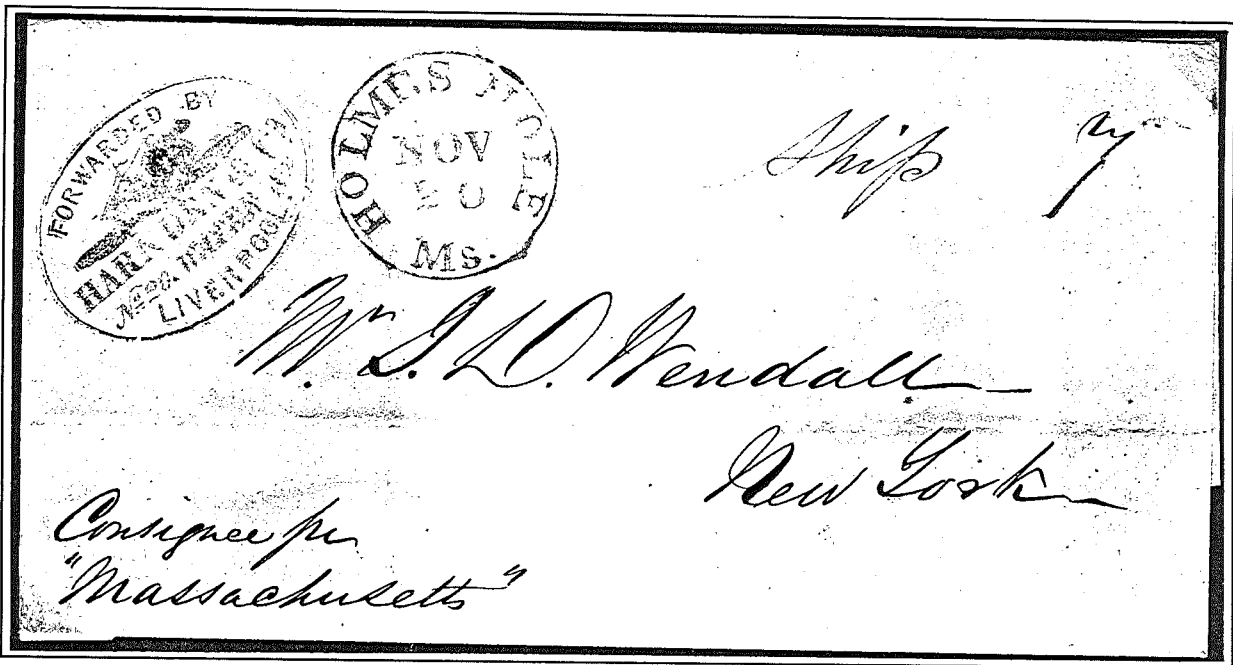 FORWARDED BY
HARNDEN & Co.
No. 20. WATER St.
LIVERPOOL
HOLMES HOLE
NOV
20
Ms.
Ship 7
Mr. G. D. Wendall
New York
Consignee per
"Massachusetts"